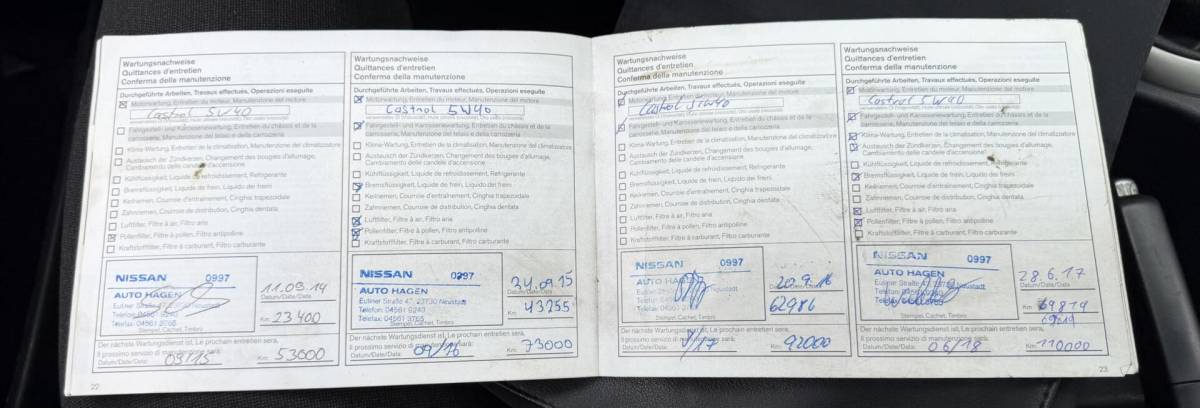 Wartungsnachweise
Quittances d'entretien
Conferma della manutenzione
Durchgeführte Arbeiten, Travaux effectués, Operazioni eseguite
Motorwartung, Entretien du moteur, Manutenzione del motore
Castrol 5W40
Fahrgestell- und Karosseriewartung, Entretien du châssis et de la
carrosserie, Manutenzione del telaio e della carrozzeria
Klima-Wartung, Entretien de la climatisation, Manutenzione del climatizzatore
Austausch der Zündkerzen, Changement des bougies d'allumage,
Cambiamento delle candele d'accensione
Kühlflüssigkeit, Liquide de refroidissement, Refrigerante
Bremsflüssigkeit, Liquide de frein, Liquido dei freni
Keilriemen, Courroie d'entraînement, Cinghia trapezoidale
Zahnriemen, Courroie de distribution, Cinghia dentata
Luftfilter, Filtre à air, Filtro aria
Pollenfilter, Filtre à pollen, Filtro antipolline
Kraftstofffilter, Filtre à carburant, Filtro carburante
NISSAN 0997
AUTO HAGEN
Eutiner Straße 47,
Telefon 04561 9240
Telefax 04561 9765
Stempel, Cachet, Timbro
11.09.14
Datum/Date/Data
Km: 23400
Der nächste Wartungsdienst ist, Le prochain entretien sera,
Il prossimo servizio di manutenzione sarà:
Datum/Date/Data: 09/15 Km: 53000
22
Wartungsnachweise
Quittances d'entretien
Conferma della manutenzione
Durchgeführte Arbeiten, Travaux effectués, Operazioni eseguite
Motorwartung, Entretien du moteur, Manutenzione del motore
Castrol 5W40
Fahrgestell- und Karosseriewartung, Entretien du châssis et de la
carrosserie, Manutenzione del telaio e della carrozzeria
Klima-Wartung, Entretien de la climatisation, Manutenzione del climatizzatore
Austausch der Zündkerzen, Changement des bougies d'allumage,
Cambiamento delle candele d'accensione
Kühlflüssigkeit, Liquide de refroidissement, Refrigerante
Bremsflüssigkeit, Liquide de frein, Liquido dei freni
Keilriemen, Courroie d'entraînement, Cinghia trapezoidale
Zahnriemen, Courroie de distribution, Cinghia dentata
Luftfilter, Filtre à air, Filtro aria
Pollenfilter, Filtre à pollen, Filtro antipolline
Kraftstofffilter, Filtre à carburant, Filtro carburante
NISSAN 0997
AUTO HAGEN
Eutiner Straße 47, 23730 Neustadt
Telefon 04561 9240
Telefax 04561 9765
Stempel, Cachet, Timbro
24.09.15
Datum/Date/Data
Km: 43255
Der nächste Wartungsdienst ist, Le prochain entretien sera,
Il prossimo servizio di manutenzione sarà:
Datum/Date/Data: 09/16 Km: 73000
Wartungsnachweise
Quittances d'entretien
Conferma della manutenzione
Durchgeführte Arbeiten, Travaux effectués, Operazioni eseguite
Motorwartung, Entretien du moteur, Manutenzione del motore
Castrol 5W40
Fahrgestell- und Karosseriewartung, Entretien du châssis et de la
carrosserie, Manutenzione del telaio e della carrozzeria
Klima-Wartung, Entretien de la climatisation, Manutenzione del climatizzatore
Austausch der Zündkerzen, Changement des bougies d'allumage,
Cambiamento delle candele d'accensione
Kühlflüssigkeit, Liquide de refroidissement, Refrigerante
Bremsflüssigkeit, Liquide de frein, Liquido dei freni
Keilriemen, Courroie d'entraînement, Cinghia trapezoidale
Zahnriemen, Courroie de distribution, Cinghia dentata
Luftfilter, Filtre à air, Filtro aria
Pollenfilter, Filtre à pollen, Filtro antipolline
Kraftstofffilter, Filtre à carburant, Filtro carburante
NISSAN 0997
AUTO HAGEN
Stempel, Cachet, Timbro
20.9.16
Datum/Date/Data
Km: 62986
Der nächste Wartungsdienst ist, Le prochain entretien sera,
Il prossimo servizio di manutenzione sarà:
Datum/Date/Data: /17 Km: 92000
Wartungsnachweise
Quittances d'entretien
Conferma della manutenzione
Durchgeführte Arbeiten, Travaux effectués, Operazioni eseguite
Motorwartung, Entretien du moteur, Manutenzione del motore
Castrol 5W40
Fahrgestell- und Karosseriewartung, Entretien du châssis et de la
carrosserie, Manutenzione del telaio e della carrozzeria
Klima-Wartung, Entretien de la climatisation, Manutenzione del climatizzatore
Austausch der Zündkerzen, Changement des bougies d'allumage,
Cambiamento delle candele d'accensione
Kühlflüssigkeit, Liquide de refroidissement, Refrigerante
Bremsflüssigkeit, Liquide de frein, Liquido dei freni
Keilriemen, Courroie d'entraînement, Cinghia trapezoidale
Zahnriemen, Courroie de distribution, Cinghia dentata
Luftfilter, Filtre à air, Filtro aria
Pollenfilter, Filtre à pollen, Filtro antipolline
Kraftstofffilter, Filtre à carburant, Filtro carburante
NISSAN 0997
AUTO HAGEN
Eutiner Straße 47, 23730 Neustadt
Telefon 04561
Telefax 04561
Stempel, Cachet, Timbro
28.6.17
Datum/Date/Data
Km: 69819
69819
Der nächste Wartungsdienst ist, Le prochain entretien sera,
Il prossimo servizio di manutenzione sarà:
Datum/Date/Data: 06/18 Km: 110000
23